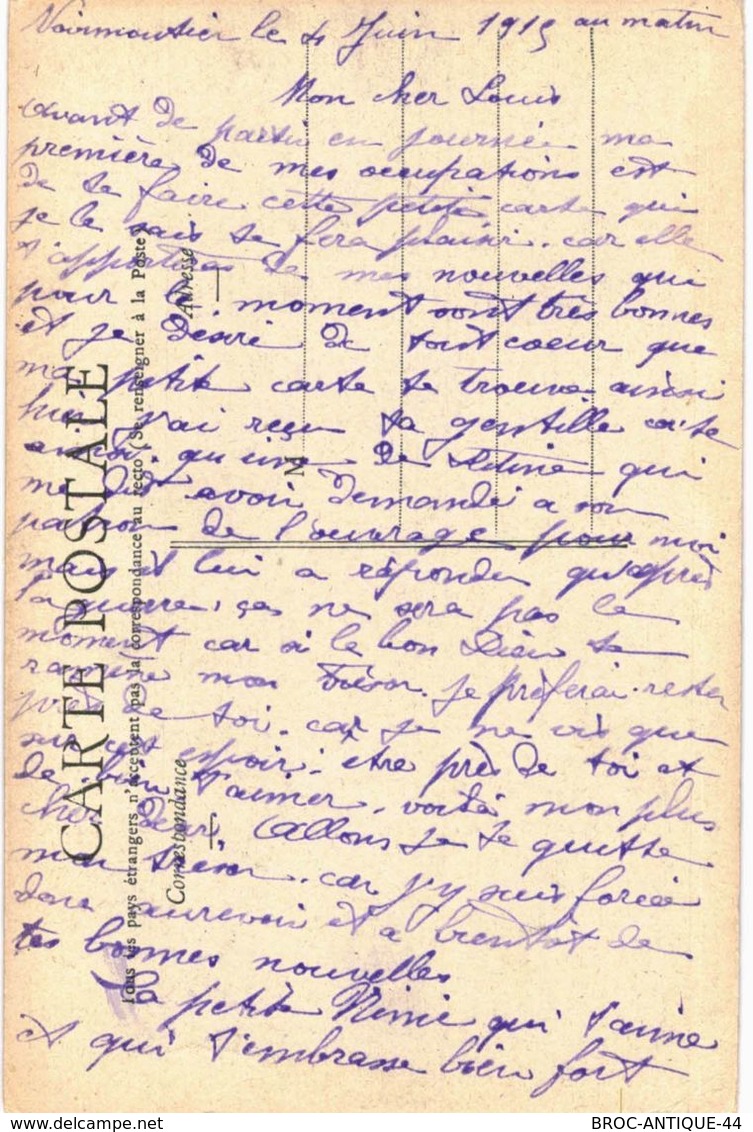 Noirmoutier le 4 Juin 1915 au matin
Mon cher Louis
Avant de partir en journée ma
première de mes occupations est
de te faire cette petite carte qui
je le sais te fera plaisir. car elle
t'apportera de mes nouvelles qui
pour le moment sont très bonnes
et je désire de tout coeur que
ma petite carte te trouve ainsi
hier j'ai reçu ta gentille carte
ainsi qu'une de Titine qui
me dit avoir demandé a son
patron de l'ouvrage pour moi
mais il lui a répondu qu'après
la guerre, ça ne sera pas le
moment car si le bon Dieu te
ramène mon trésor. je préferai rester
près de toi. car je ne vis que
sur cet espoir. être près de toi et
de bien t'aimer. voilà mon plus
cher désir. Allons je te quitte
mon trésor. car j'y suis forcée
donc aurevoir et a bientôt de
tes bonnes nouvelles
Ta petite Nini qui t'aime
et qui t'embrasse bien fort
CARTE POSTALE
Tous les pays étrangers n'acceptent pas la correspondance au recto (Se renseigner à la Poste)
Correspondance
Adresse
M
delcampe.net
BROC-ANTIQUE-44